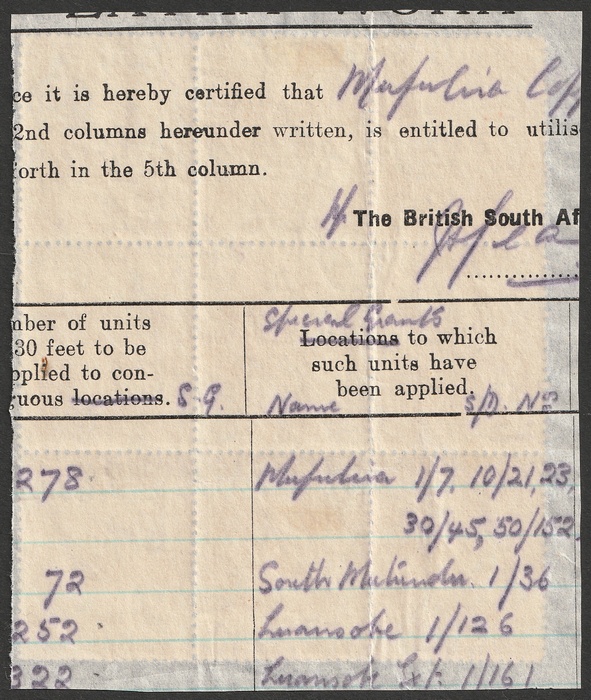 EXTRA WORK
ce it is hereby certified that Mufulira Cop
2nd columns hereunder written, is entitled to utilis
orth in the 5th column.
The British South Af
mber of units
30 feet to be
pplied to con-
uous locations. S.G.
Special Grants
Locations to which
such units have
been applied.
Name S/D. Nos
278 Mufulira 1/7, 10/21, 23,
30/45, 50/152
72 South Mutundu. 1/36
252 Luansobe 1/126
322 Luansobe Ext. 1/161